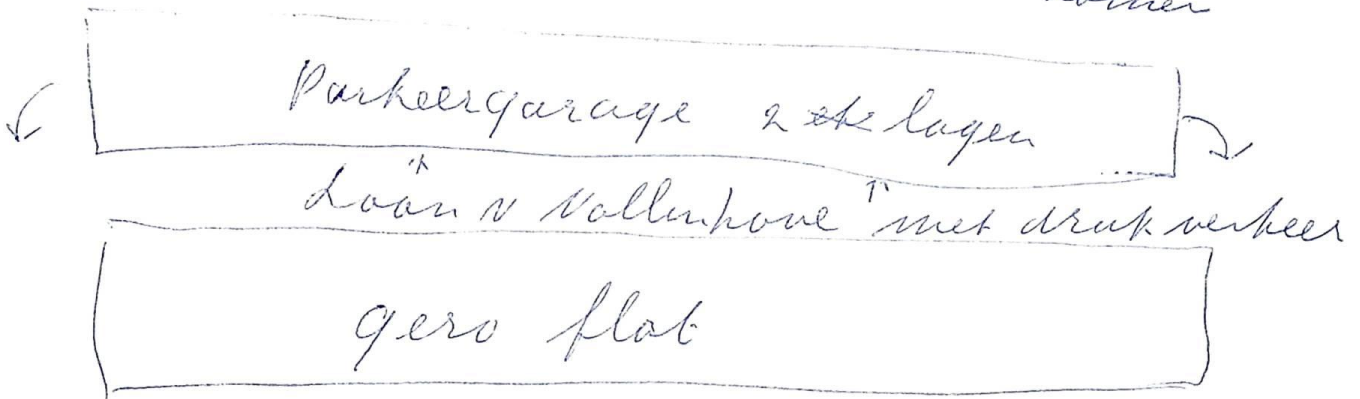 Parkeergarage 2 lagen
Laan v Vollenhove met druk verkeer
gero flat